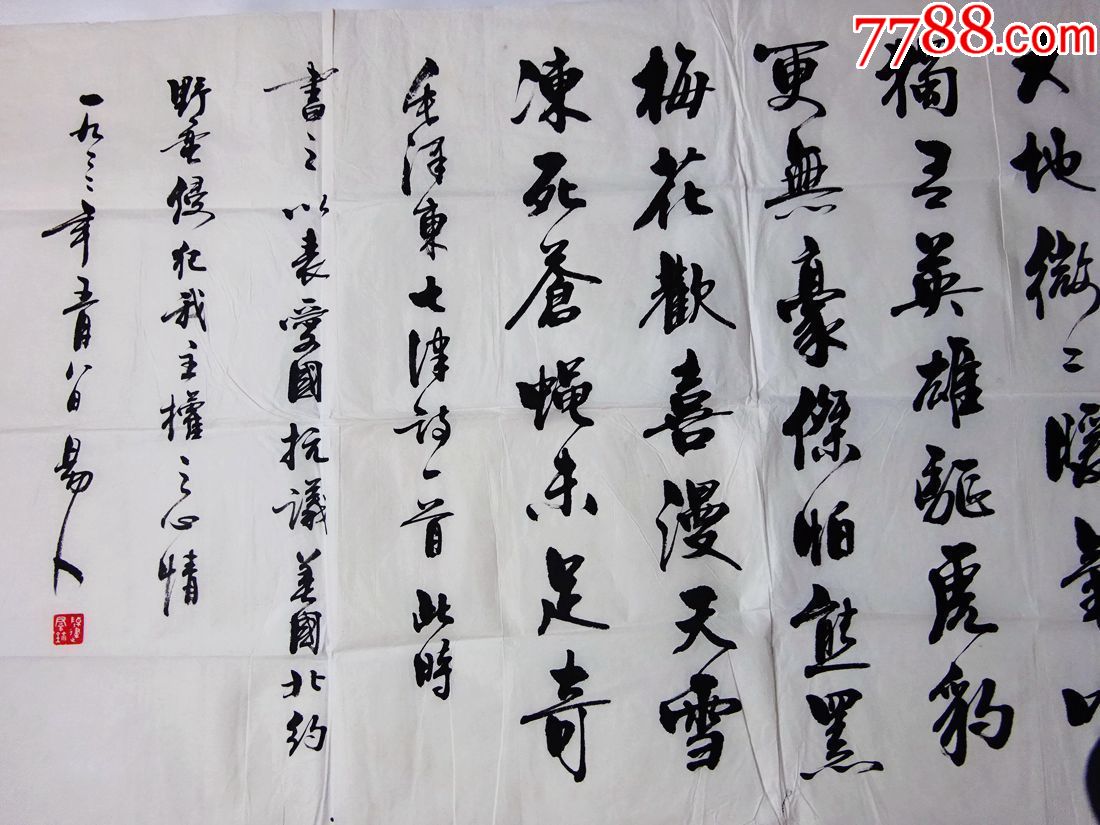 大地微〻暖氣吹
獨有英雄驅虎豹
更無豪傑怕熊羆
梅花歡喜漫天雪
凍死蒼蝇未足奇
毛澤東七律詩一首 此時
書之以表愛國抗議美國北約
野蛮侵犯我主權之心情
一九〻〻年五月八日 易人
7788.com